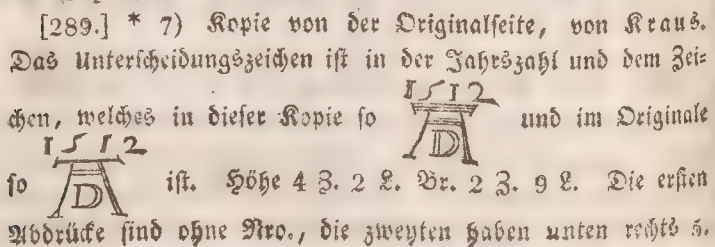 [289.] * 7) Kopie von der Originalseite, von Kraus.
Das Unterscheidungszeichen ist in der Jahrszahl und dem Zei-
chen, welches in dieser Kopie so 1512 AD und im Originale
so 1512 AD ist. Höhe 4 Z. 2 L. Br. 2 Z. 9 L. Die ersten
Abdrücke sind ohne Nro., die zweyten haben unten rechts 5.